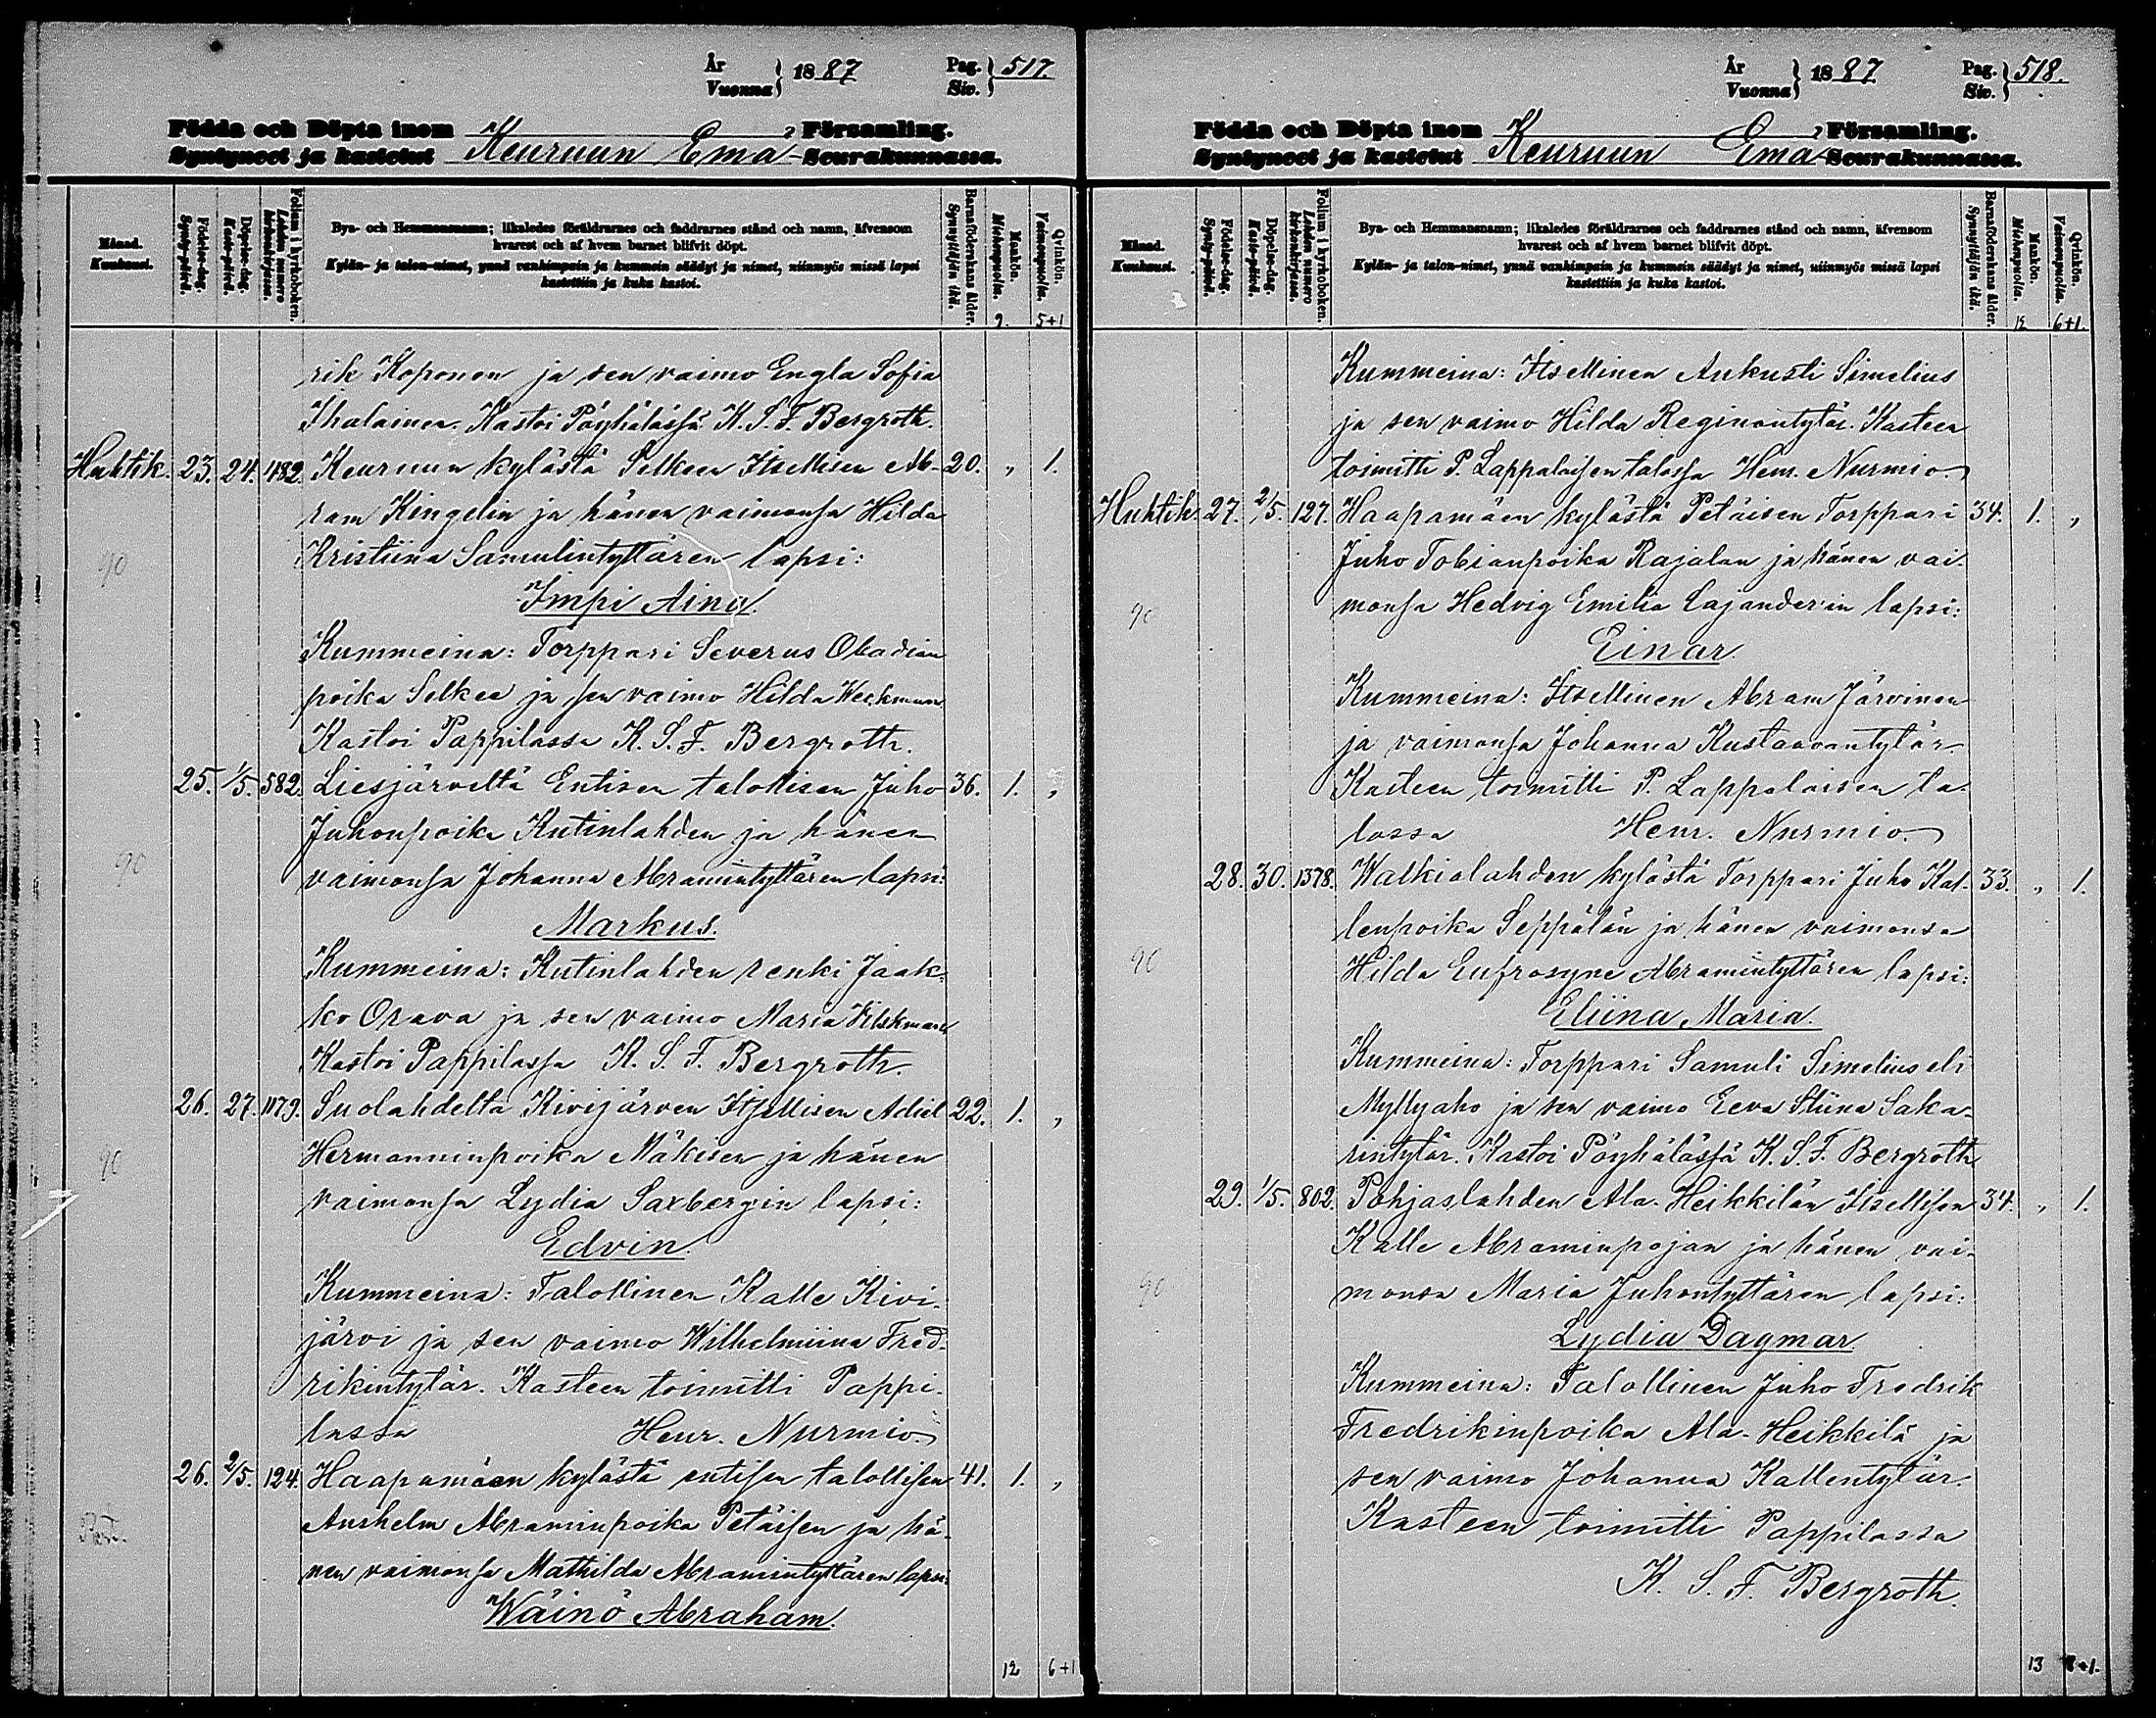 År
Vuonna } 1887
Pag.
Siv. } 517.
Födda och Döpta inom
Syntyneet ja kastetut Keuruun Emä- Församling.
Seurakunnassa.
Månad.
Kuukausi.
Födelse-dag.
Synty-päivä.
Döpelse-dag.
Kaste-päivä.
Folium i kyrkoboken.
Lehden numero
kirkonkirjassa.
Bya- och Hemmansnamn; likaledes föräldrarnes och faddrarnes stånd och namn, äfvensom
hvarest och af hvem barnet blifvit döpt.
Kylän- ja talon-nimet, ynnä vanhimpain ja kummein säädyt ja nimet, niinmyös missä lapsi
kastettiin ja kuka kastoi.
Barnaföderskans ålder.
Synnyttäjän ikä.
Mankön.
Miehenpuolia.
Qvinkön.
Vaimonpuolia.
9. 5+1
rik Koponen ja sen vaimo Engla Sofia
Ihalainen. Kastoi Pöyhölässä K. S. F. Bergroth.
Huhtik. 23. 24. 482. Keuruun kylästä Selkeen Itsellisen Ab- 20. „ 1.
ram Kingelin ja hänen vaimonsa Hilda
90 Kristiina Samulintyttären lapsi:
Impi Aina.
Kummeina: Torppari Severus Obadian
poika Selkee ja sen vaimo Hilda Weckman
Kastoi Pappilassa K. S. F. Bergroth.
25. 1/5. 582. Liesjärveltä Entisen talollisen Juho 36. 1. „
Juhonpoika Kutinlahden ja hänen
90 vaimonsa Johanna Abramintyttären lapsi:
Markus.
Kummeina: Kutinlahden renki Jaak-
ko Orava ja sen vaimo Maria
Kastoi Pappilassa K. S. F. Bergroth.
26. 27. 1179. Suolahdelta Kivijärven Itsellisen Adiel 22. 1. „
90 Hermanninpoika Mäkisen ja hänen
vaimonsa Lydia Saxbergin lapsi:
Edvin.
Kummeina: Talollinen Kalle Kivi-
järvi ja sen vaimo Wilhelmiina Fred-
rikintytär. Kasteen toimitti Pappi-
lassa Henr. Nurmio.
26. 2/5. 124. Haapamäen kylästä entisen talollisen 41. 1. „
Anshelm Abraminpoika Petäisen ja hä-
nen vaimonsa Mathilda Abramintyttären lapsi:
Wäinö Abraham.
12 6+1
År
Vuonna } 1887
Pag.
Siv. } 518.
Födda och Döpta inom
Syntyneet ja kastetut Keuruun Emä- Församling.
Seurakunnassa.
Månad.
Kuukausi.
Födelse-dag.
Synty-päivä.
Döpelse-dag.
Kaste-päivä.
Folium i kyrkoboken.
Lehden numero
kirkonkirjassa.
Bya- och Hemmansnamn; likaledes föräldrarnes och faddrarnes stånd och namn, äfvensom
hvarest och af hvem barnet blifvit döpt.
Kylän- ja talon-nimet, ynnä vanhimpain ja kummein säädyt ja nimet, niinmyös missä lapsi
kastettiin ja kuka kastoi.
Barnaföderskans ålder.
Synnyttäjän ikä.
Mankön.
Miehenpuolia.
Qvinkön.
Vaimonpuolia.
12 6+1.
Kummeina: Itsellinen Aukusti Simelius
ja sen vaimo Hilda Reginantytär. Kasteen
toimitti P. Lappalaisen talossa Henr. Nurmio.
Huhtik. 27. 2/5. 127. Haapamäen kylästä Petäisen Torppari 34. 1. „
Juho Tobianpoika Rajalan ja hänen vai-
90 monsa Hedvig Emilia Cajanderin lapsi:
Einar.
Kummeina: Itsellinen Abram Järvinen
ja vaimonsa Johanna Kustaavantytär
Kasteen toimitti P. Lappalaisen ta-
lossa Henr. Nurmio.
28. 30. 1378. Walkialahden kylästä Torppari Juho Kal- 33. „ 1.
lenpoika Seppälän ja hänen vaimonsa
90 Hilda Eufrosyne Abramintyttären lapsi:
Eliina Maria.
Kummeina: Torppari Samuli Simelius eli
Myllyaho ja sen vaimo Eeva Stiina Saka-
rintytär. Kastoi Pöyhölässä K. S. F. Bergroth
29. 1/5. 802. Pohjaslahden Ala-Heikkilän Itsellisen 34. „ 1.
Kalle Abraminpojan ja hänen vai-
90 monsa Maria Juhontyttären lapsi:
Lydia Dagmar.
Kummeina: Talollinen Juho Fredrik
Fredrikinpoika Ala-Heikkilä ja
sen vaimo Johanna Kallentytär.
Kasteen toimitti Pappilassa
K. S. F. Bergroth.
13 8+1.